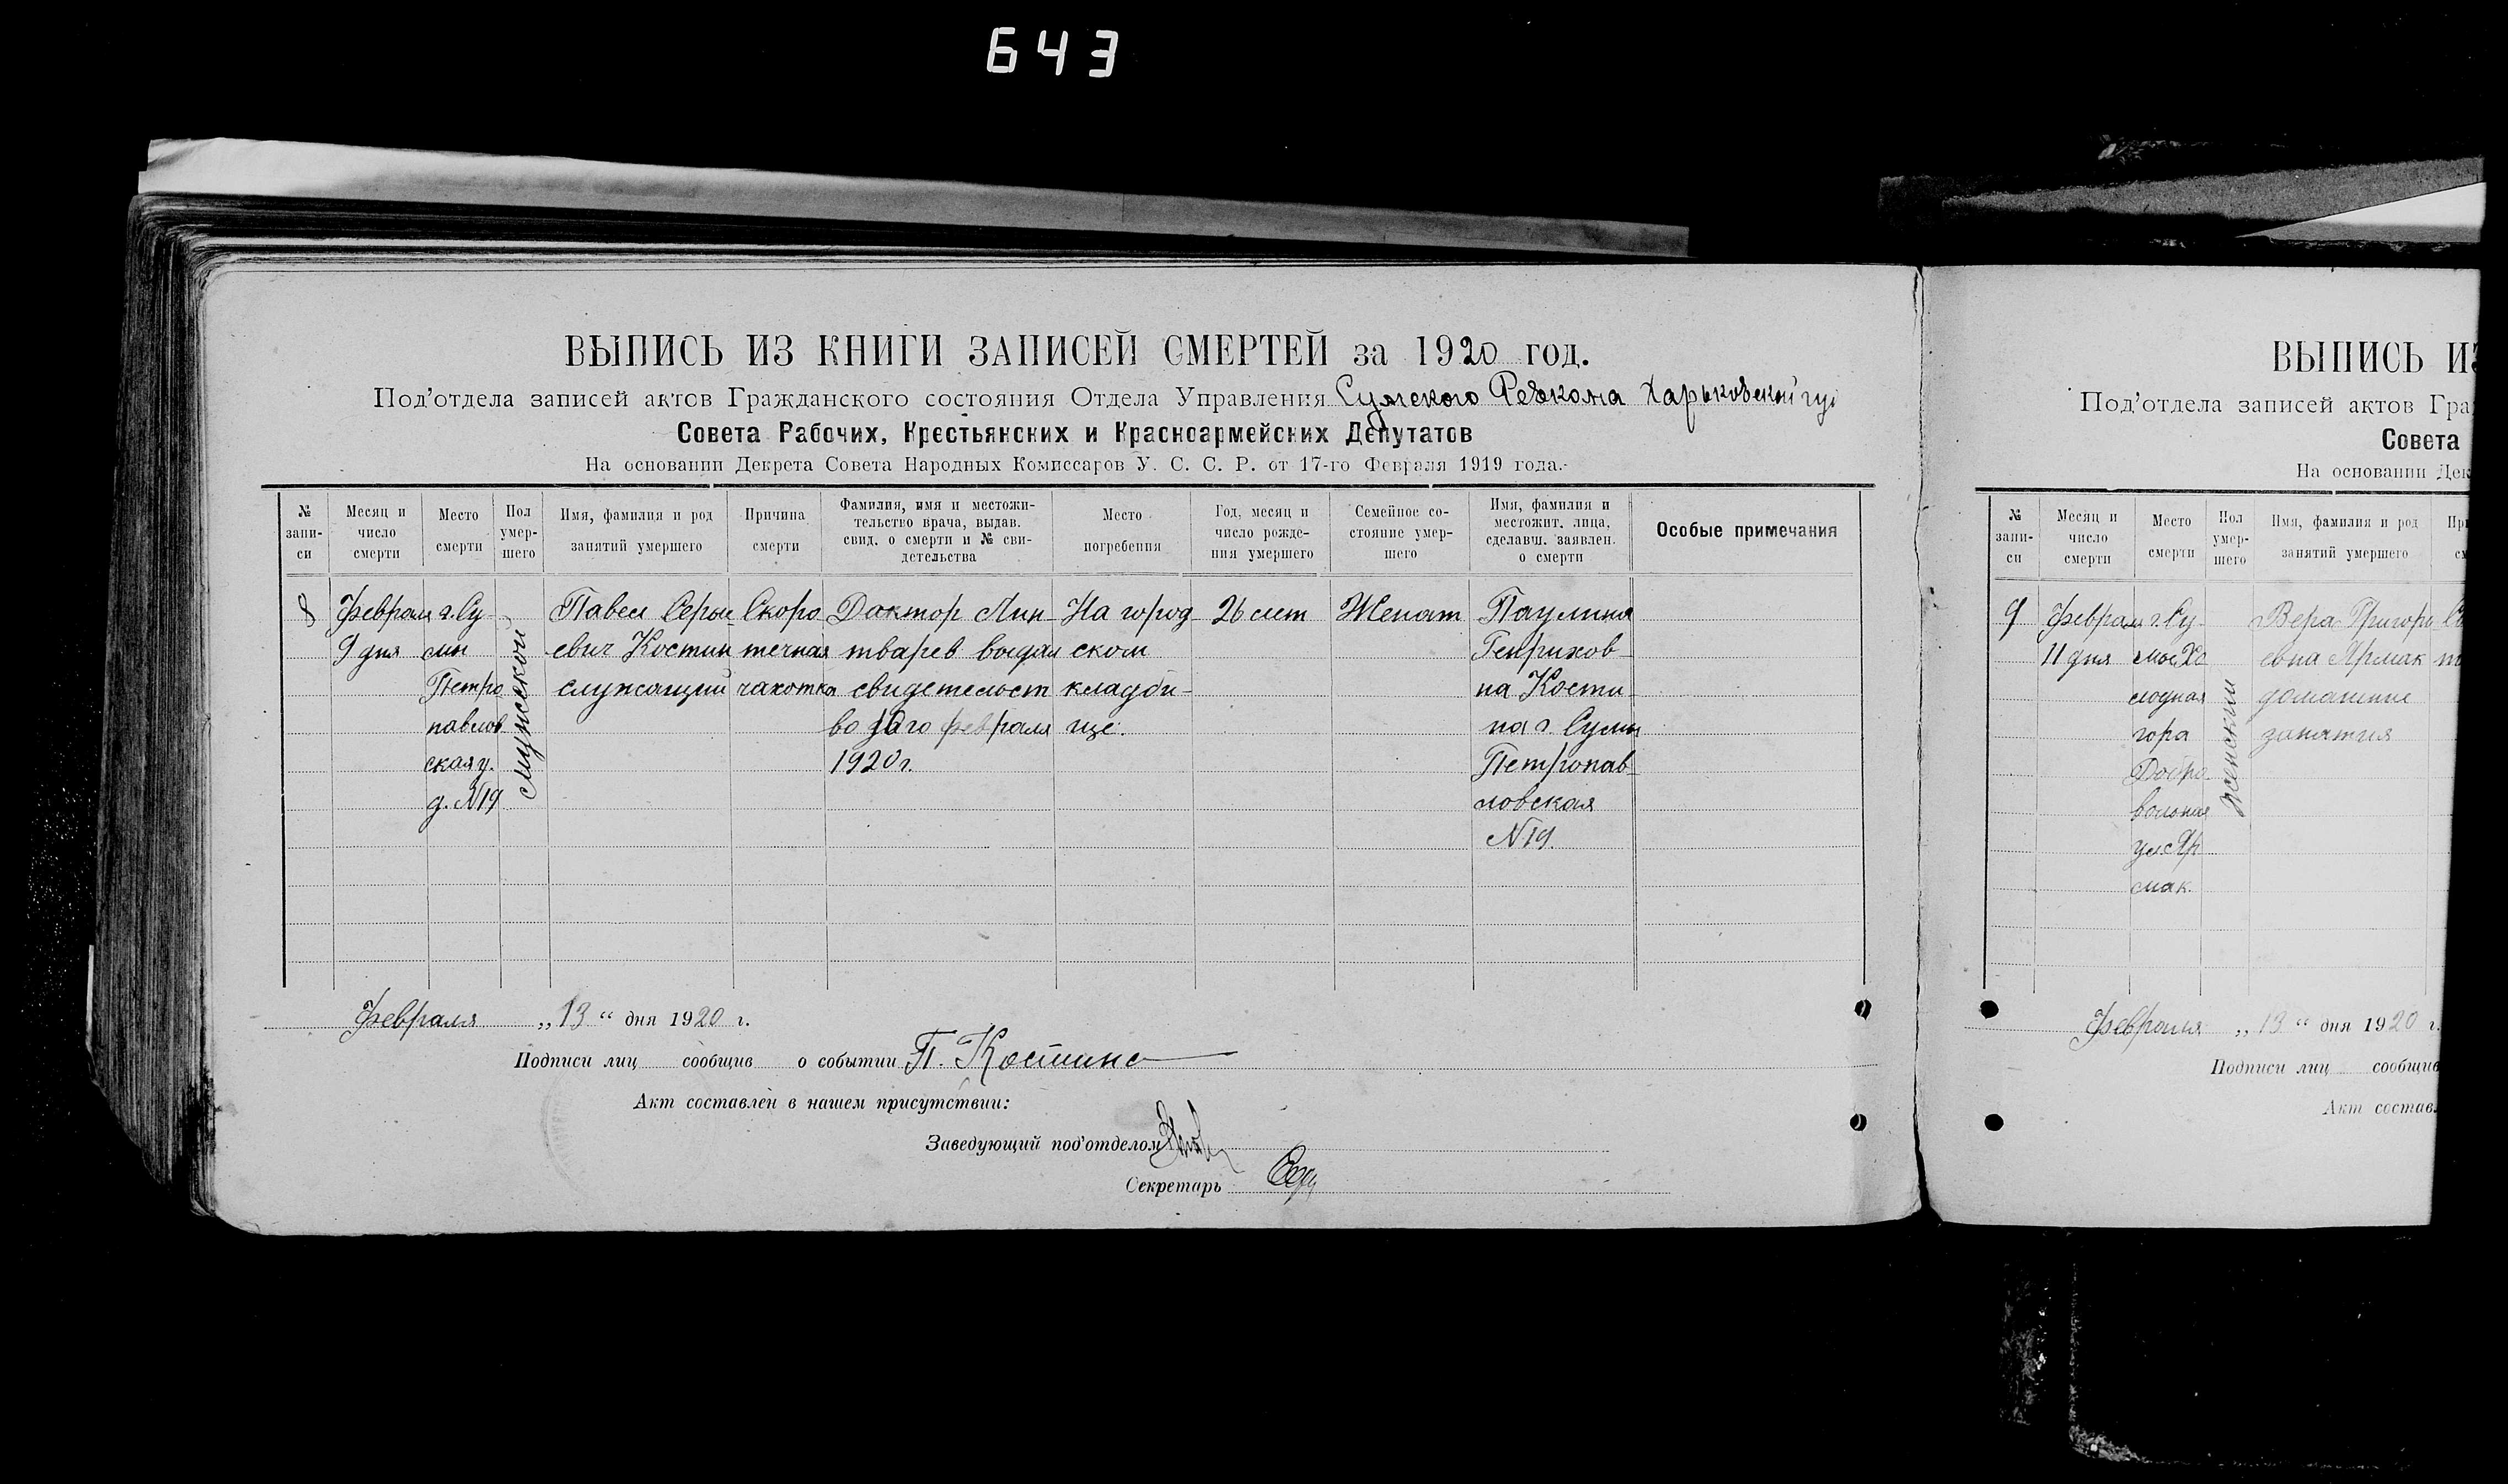 643
ВЫПИСЬ ИЗ КНИГИ ЗАПИСЕЙ СМЕРТЕЙ за 1920 год.
Под'отдела записей актов Гражданского состояния Отдела Управления Сумского Ревкома Харьковской гу
Совета Рабочих, Крестьянских и Красноармейских Депутатов
На основании Декрета Совета Народных Комиссаров У. С. С. Р. от 17-го Февраля 1919 года.
№ запи-
си
Месяц и
число
смерти
Место
смерти
Пол
умер-
шего
Имя, фамилия и род
занятий умершего
Причина
смерти
Фамилия, имя и местожи-
тельство врача, выдав.
свид. о смерти и № сви-
детельства
Место
погребения
Год, месяц и
число рожде-
ния умершего
Семейное со-
стояние умер-
шего
Имя, фамилия и
местожит. лица,
сделавш. заявлен.
о смерти
Особые примечания
8
Февраля
9 дня
г. Су-
мы
Петро
павлов
ская у.
д. N19
мужской
Павел Серге-
евич Костин
служащий
Скоро
течная
чахотка
Доктор Лин-
тварев выдал
свидетельст
во 10го февраля
1920 г.
На город
ском
кладби-
ще.
26 лет
Женат
Паулина
Генрихов-
на Кости-
на г. Сумы
Петропав-
ловская
N 19.
Февраля „13“ дня 1920 г.
Подписи лиц сообщив о событии П. Костина
Акт составлен в нашем присутствии:
Заведующий под'отделом
Секретарь
ВЫПИСЬ ИЗ
Под'отдела записей актов Гра
Совета
На основании Дек
№
запи-
си
Месяц и
число
смерти
Место
смерти
Пол
умер-
шего
Имя, фамилия и род
занятий умершего
9
Февраля
11 дня
г. Су-
мы Хо
лодная
гора
Добро
вольная
ул. Яр
мак.
женский
Вера Григорь
евна Ярмак
домашние
занятия
Февраля „13“ дня 1920 г.
Подписи лиц сообщив
Акт состав